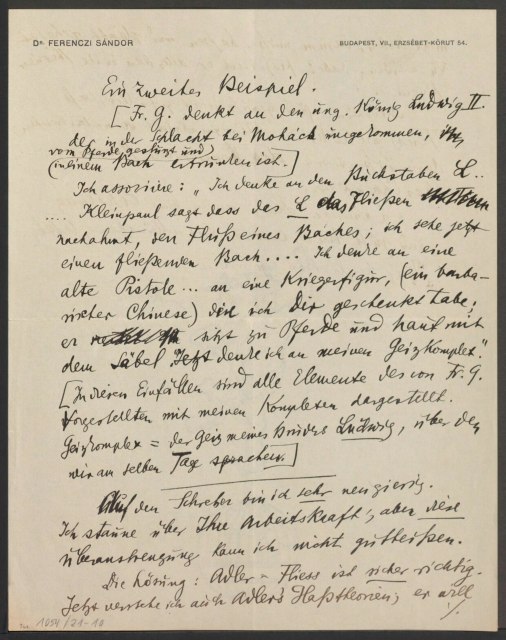 Dr. FERENCZI SÁNDOR
BUDAPEST, VII., ERZSÉBET-KÖRUT 54.
Ein zweites Beispiel.
[Fr. G. denkt an den ung. König Ludwig II.
der in der Schlacht bei Mohács umgekommen,
vom Pferde gestürzt und
(in einem Bach ertrunken ist.]
Ich associire: „Ich denke an den Buchstaben L..
.... Kleinpaul sagt dass das L das Fließen
nachahmt, den Fluß eines Baches; ich sehe jetzt
einen fließenden Bach.... Ich denke an eine
alte Pistole... an eine Kriegerfigur, (ein barba-
rischer Chinese) die ich Dir geschenkt habe;
er sitzt zu Pferde und haut mit
dem Säbel Jetzt denke ich an meinen Geizkomplex."
[In diesen Einfällen sind alle Elemente des von Fr. G.
Vorgestellten mit meinen Komplexen dargestellt.
Geizkomplex = der Geiz meines Bruders Ludwig, über den
wir am selben Tag sprachen.]
Auf den Schreber bin ich sehr neugierig.
Ich staune über Ihre Arbeitskraft; aber diese
Überanstrengung kann ich nicht gutheißen.
Die Lösung: Adler = Fliess ist sicher richtig.
Jetzt verstehe ich auch Adler's Haßtheorien; er will
1054/21-10